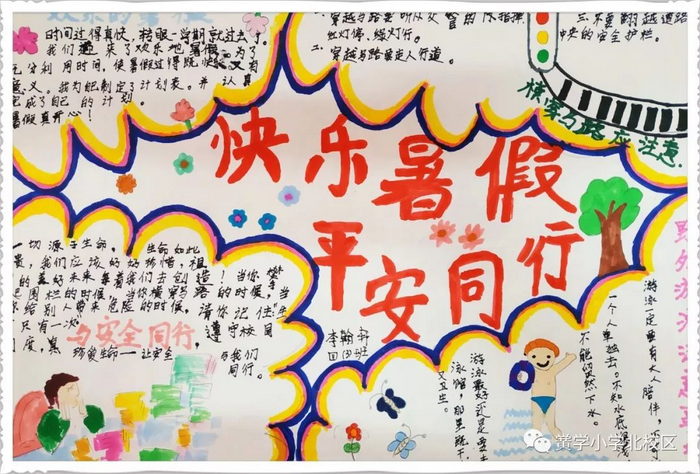 时间过得真快，转眼一学期就过去了
我们迎来了欢乐地暑假，为了
充分利用时间，使暑假过得既快乐又有
意义。我为自己制定了计划表。并认真
完成了自己的计划。
暑假真开心！
红灯停，绿灯行。
二、穿越马路要走人行道。
三、不要翻越道路
中央的安全护栏。
横穿马路应注意
快乐暑假
平安同行
李翰轩
四(3)班
一切源于生命，生命如此
贵，我们应该好好珍惜，祖
的美好未来等着我们去创造！当你
围栏的时候，当你横穿马路的时候，当
给别人带来危险的时候，请你记住生
只有一次 遵守校园
与安全同行
珍爱生命——让安全与我们
同行。
游泳一定要有大人陪伴，不可
一个人单独去。不知水底深浅
不能突然下水。
游泳最好还是要去
泳馆，那里既干
又卫生。
黄学小学北校区